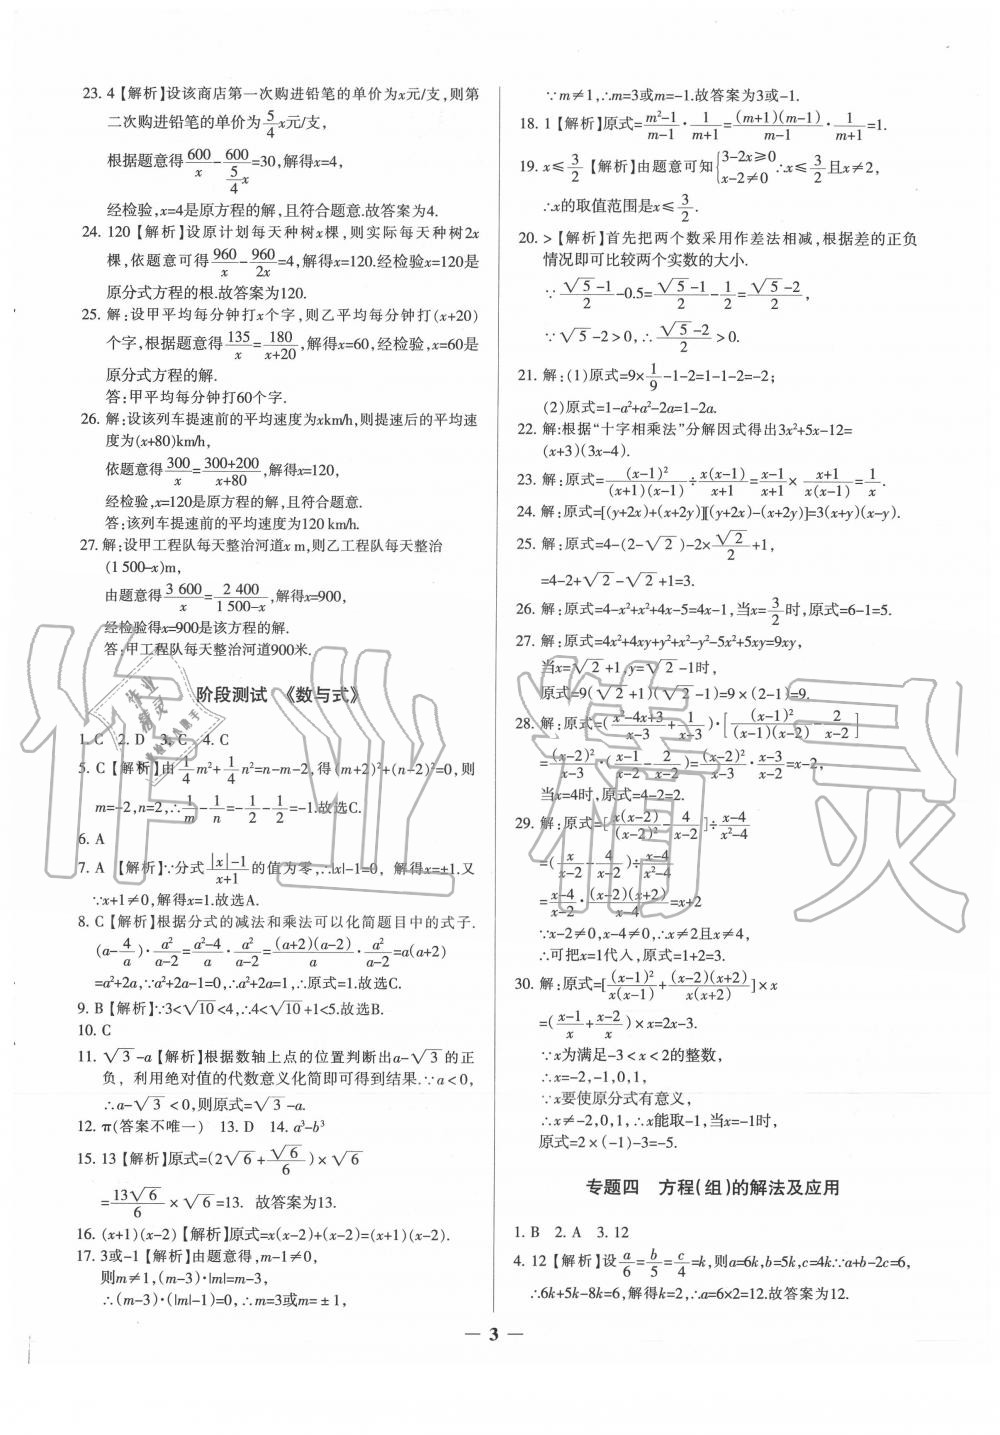 23. 4【解析】设该商店第一次购进铅笔的单价为x元/支,则第
二次购进铅笔的单价为5/4x元/支,
根据题意得600/x-600/(5/4x)=30,解得x=4,
经检验,x=4是原方程的解,且符合题意.故答案为4.
24. 120【解析】设原计划每天种树x棵,则实际每天种树2x
棵,依题意可得960/x-960/2x=4,解得x=120.经检验x=120是
原分式方程的根.故答案为120.
25. 解:设甲平均每分钟打x个字,则乙平均每分钟打(x+20)
个字,根据题意得135/x=180/(x+20),解得x=60,经检验,x=60是
原分式方程的解.
答:甲平均每分钟打60个字.
26. 解:设该列车提速前的平均速度为xkm/h,则提速后的平均速
度为(x+80)km/h,
依题意得300/x=(300+200)/(x+80),解得x=120,
经检验,x=120是原方程的解,且符合题意.
答:该列车提速前的平均速度为120 km/h.
27. 解:设甲工程队每天整治河道x m,则乙工程队每天整治
(1 500-x)m,
由题意得3 600/x=2 400/(1 500-x),解得x=900,
经检验得x=900是该方程的解.
答:甲工程队每天整治河道900米.
阶段测试 《数与式》
1. C 2. D 3. C 4. C
5. C【解析】由1/4m²+1/4n²=n-m-2,得(m+2)²+(n-2)²=0,则
m=-2,n=2,∴1/m-1/n=-1/2-1/2=-1.故选C.
6. A
7. A【解析】∵分式(|x|-1)/(x+1)的值为零,∴|x|-1=0,解得x=±1.又
∵x+1≠0,解得x=1.故选A.
8. C【解析】根据分式的减法和乘法可以化简题目中的式子.
(a-4/a)·a²/(a-2)=(a²-4)/a·a²/(a-2)=(a+2)(a-2)/a·a²/(a-2)=a(a+2)
=a²+2a,∵a²+2a-1=0,∴a²+2a=1,∴原式=1.故选C.
9. B【解析】∵3<√10<4,∴4<√10+1<5.故选B.
10. C
11. √3-a【解析】根据数轴上点的位置判断出a-√3的正
负,利用绝对值的代数意义化简即可得到结果.∵a<0,
∴a-√3<0,则原式=√3-a.
12. π(答案不唯一) 13. D 14. a³-b³
15. 13【解析】原式=(2√6+√6/6)×√6
=13√6/6×√6=13. 故答案为13.
16. (x+1)(x-2)【解析】原式=x(x-2)+(x-2)=(x+1)(x-2).
17. 3或-1【解析】由题意得,m-1≠0,
则m≠1,(m-3)·|m|=m-3,
∴(m-3)·(|m|-1)=0,∴m=3或m=±1,
∵m≠1,∴m=3或m=-1.故答案为3或-1.
18. 1【解析】原式=(m²-1)/(m-1)·1/(m+1)=(m+1)(m-1)/(m-1)·1/(m+1)=1.
19. x≤3/2【解析】由题意可知{3-2x≥0 x-2≠0∴x≤3/2且x≠2,
∴x的取值范围是x≤3/2.
20. >【解析】首先把两个数采用作差法相减,根据差的正负
情况即可比较两个实数的大小.
∵(√5-1)/2-0.5=(√5-1)/2-1/2=(√5-2)/2,
∵√5-2>0,∴(√5-2)/2>0.
21. 解:(1)原式=9×1/9-1-2=1-1-2=-2;
(2)原式=1-a²+a²-2a=1-2a.
22. 解:根据“十字相乘法”分解因式得出3x²+5x-12=
(x+3)(3x-4).
23. 解:原式=(x-1)²/(x+1)(x-1)÷x(x-1)/(x+1)=(x-1)/(x+1)×(x+1)/x(x-1)=1/x.
24. 解:原式=[(y+2x)+(x+2y)][(y+2x)-(x+2y)]=3(x+y)(x-y).
25. 解:原式=4-(2-√2)-2×√2/2+1,
=4-2+√2-√2+1=3.
26. 解:原式=4-x²+x²+4x-5=4x-1,当x=3/2时,原式=6-1=5.
27. 解:原式=4x²+4xy+y²+x²-y²-5x²+5xy=9xy,
当x=√2+1,y=√2-1时,
原式=9(√2+1)(√2-1)=9×(2-1)=9.
28. 解:原式=(x²-4x+3/(x-3)+1/(x-3))·[(x-1)²/(x-1)(x-2)-2/(x-2)]
=(x-2)²/(x-3)·((x-1)/(x-2)-2/(x-2))=(x-2)²/(x-3)·(x-3)/(x-2)=x-2,
当x=4时,原式=4-2=2.
29. 解:原式=[x(x-2)/(x-2)²-4/(x-2)]÷(x-4)/(x²-4)
=(x/(x-2)-4/(x-2))÷(x-4)/(x²-4)
=(x-4)/(x-2)·(x-2)(x+2)/(x-4)=x+2
∵x-2≠0,x-4≠0,∴x≠2且x≠4,
∴可把x=1代入,原式=1+2=3.
30. 解:原式=[(x-1)²/x(x-1)+(x-2)(x+2)/x(x+2)]×x
=((x-1)/x+(x-2)/x)×x=2x-3.
∵x为满足-3<x<2的整数,
∴x=-2,-1,0,1,
∵x要使原分式有意义,
∴x≠-2,0,1,∴x能取-1,当x=-1时,
原式=2×(-1)-3=-5.
专题四 方程(组)的解法及应用
1. B 2. A 3. 12
4. 12【解析】设a/6=b/5=c/4=k,则a=6k,b=5k,c=4k∵a+b-2c=6,
∴6k+5k-8k=6,解得k=2,∴a=6×2=12.故答案为12.
— 3 —
作业精灵